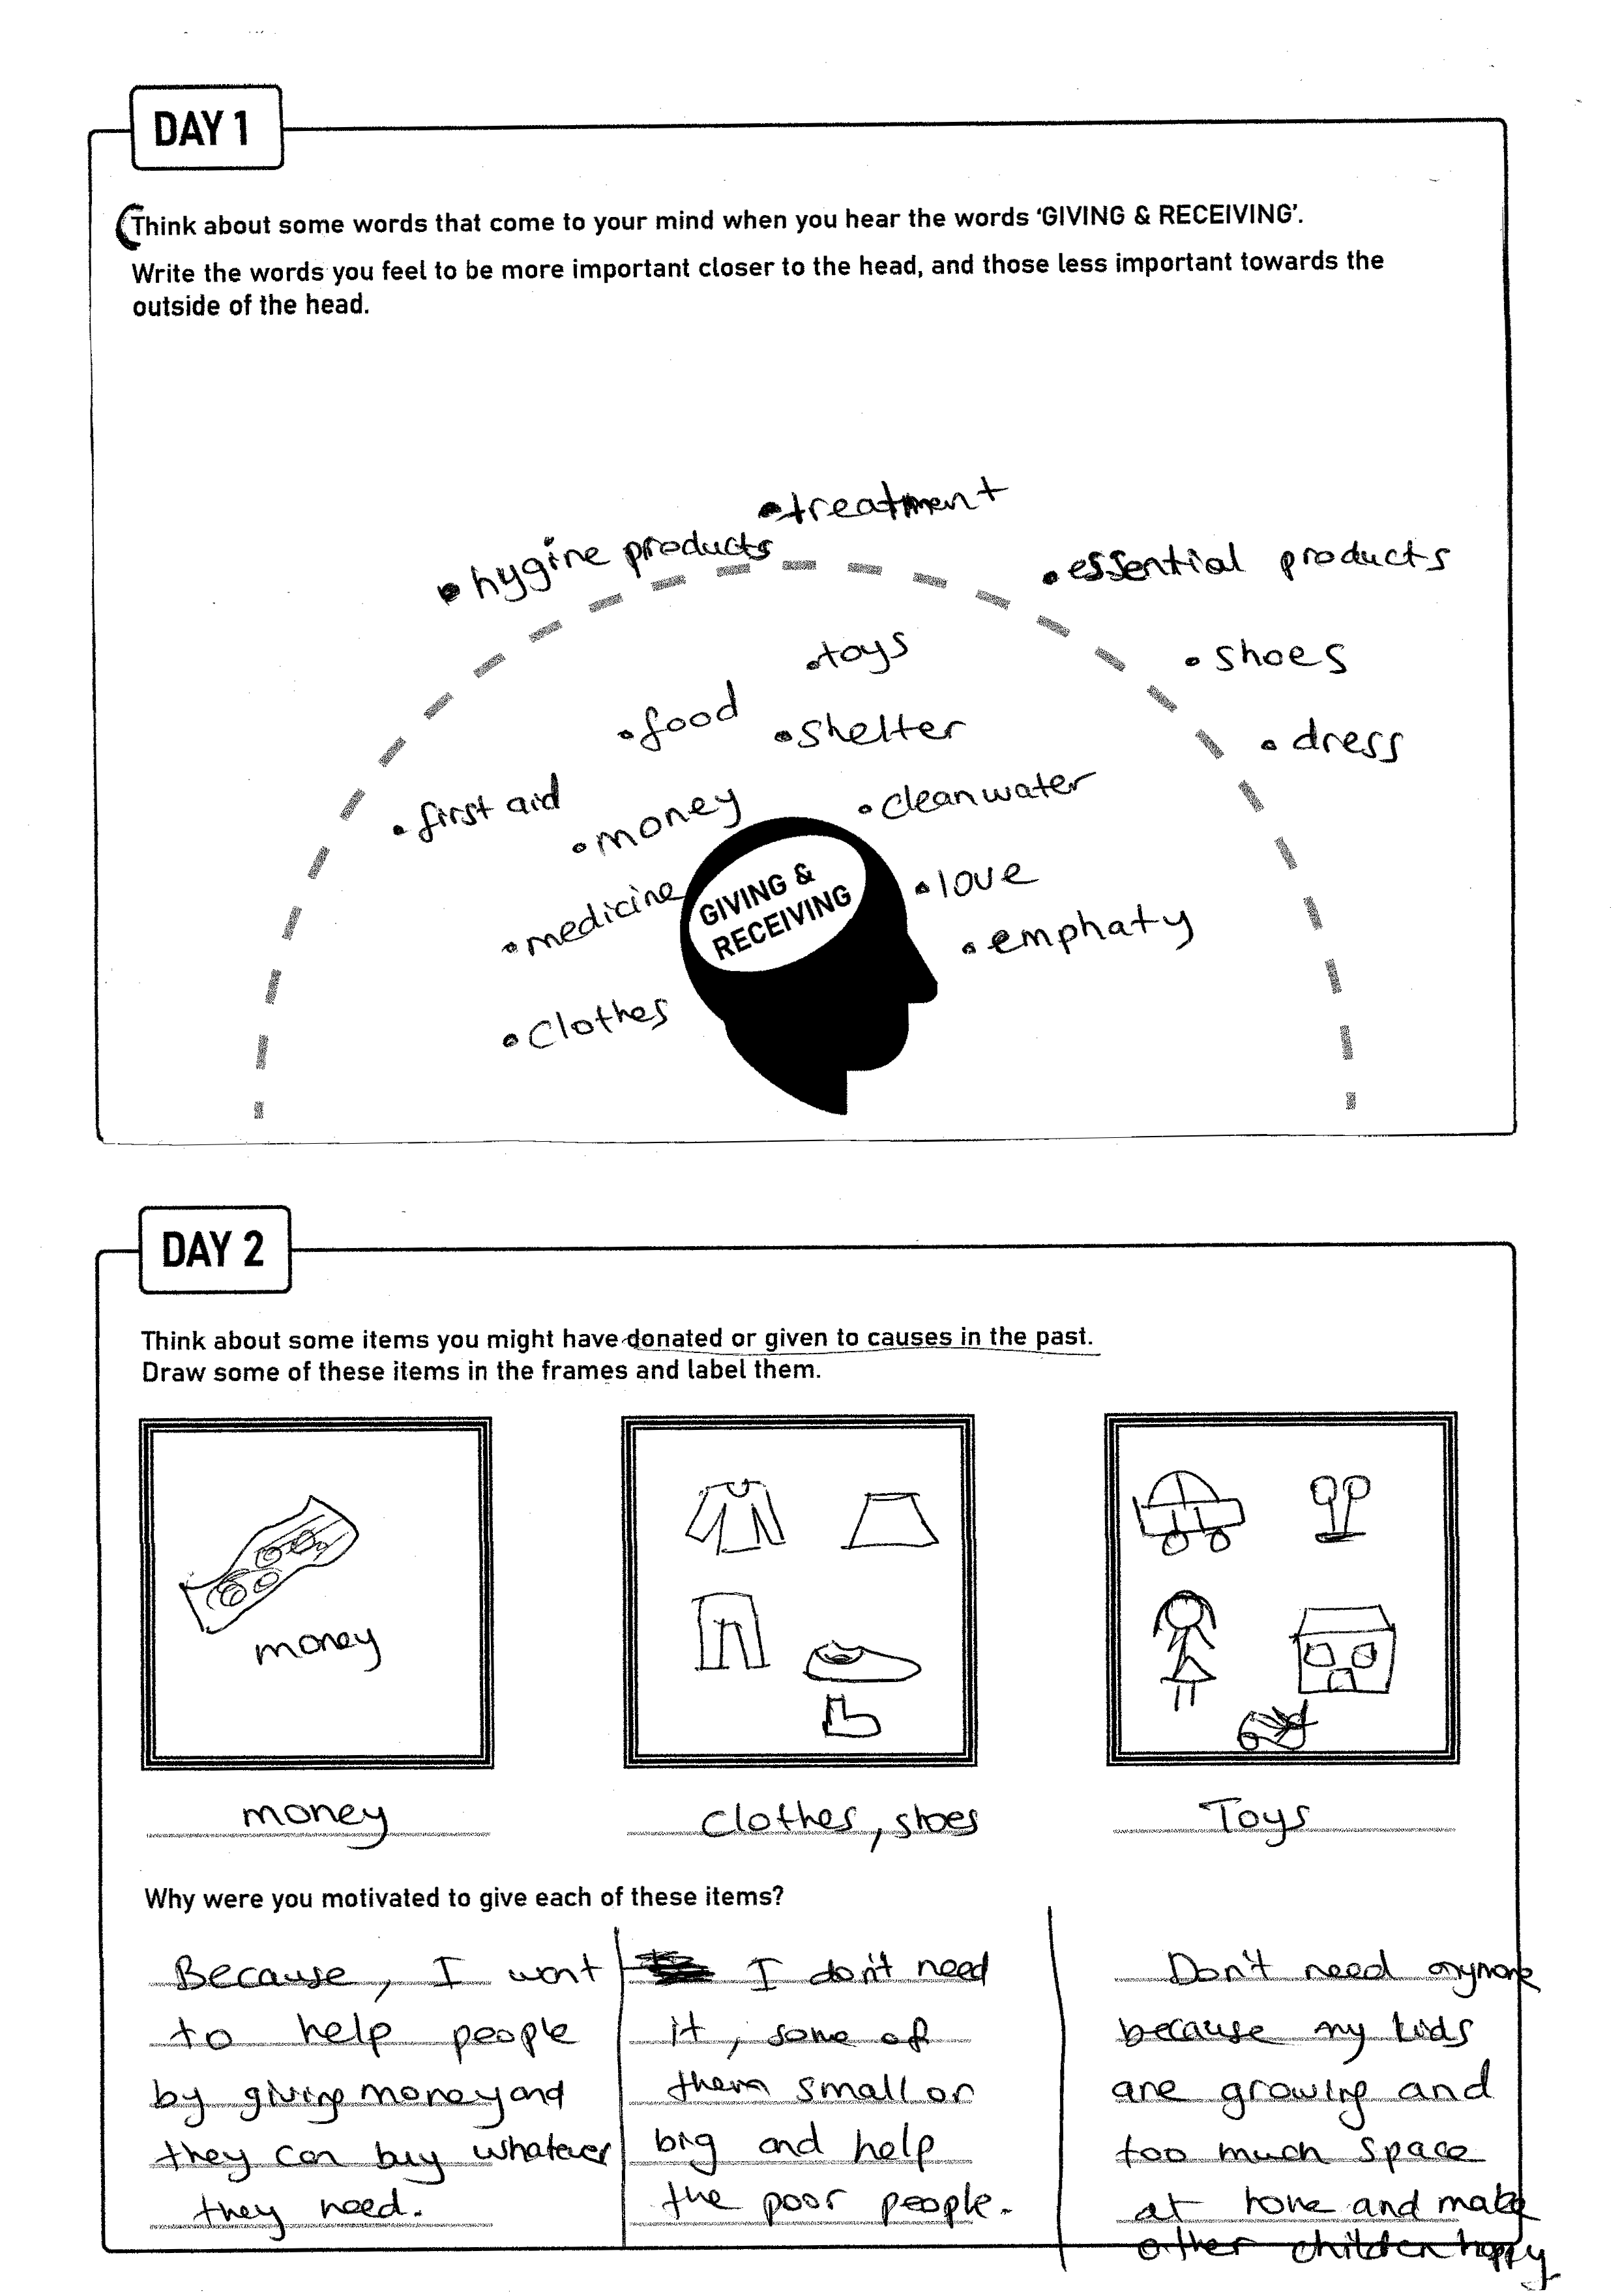 DAY 1
Think about some words that come to your mind when you hear the words 'GIVING & RECEIVING'.
Write the words you feel to be more important closer to the head, and those less important towards the
outside of the head.
•treatment
•hygine products
•essential products
•toys
•shoes
•food
•shelter
•dress
•first aid
•money
•cleanwater
•medicine
GIVING &
RECEIVING
•love
•emphaty
•clothes
DAY 2
Think about some items you might have donated or given to causes in the past.
Draw some of these items in the frames and label them.
money
money
Clothes, shoes
Toys
Why were you motivated to give each of these items?
Because, I want
to help people
by giving money and
they can buy whatever
they need.
I don't need
it, some of
them small or
big and help
the poor people.
Don't need anymore
because my kids
are growing and
too much space
at home and make
other children happy